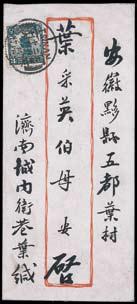 安徽黟縣五都葉村
葉采英伯母安啓
濟南城內衛巷葉緘